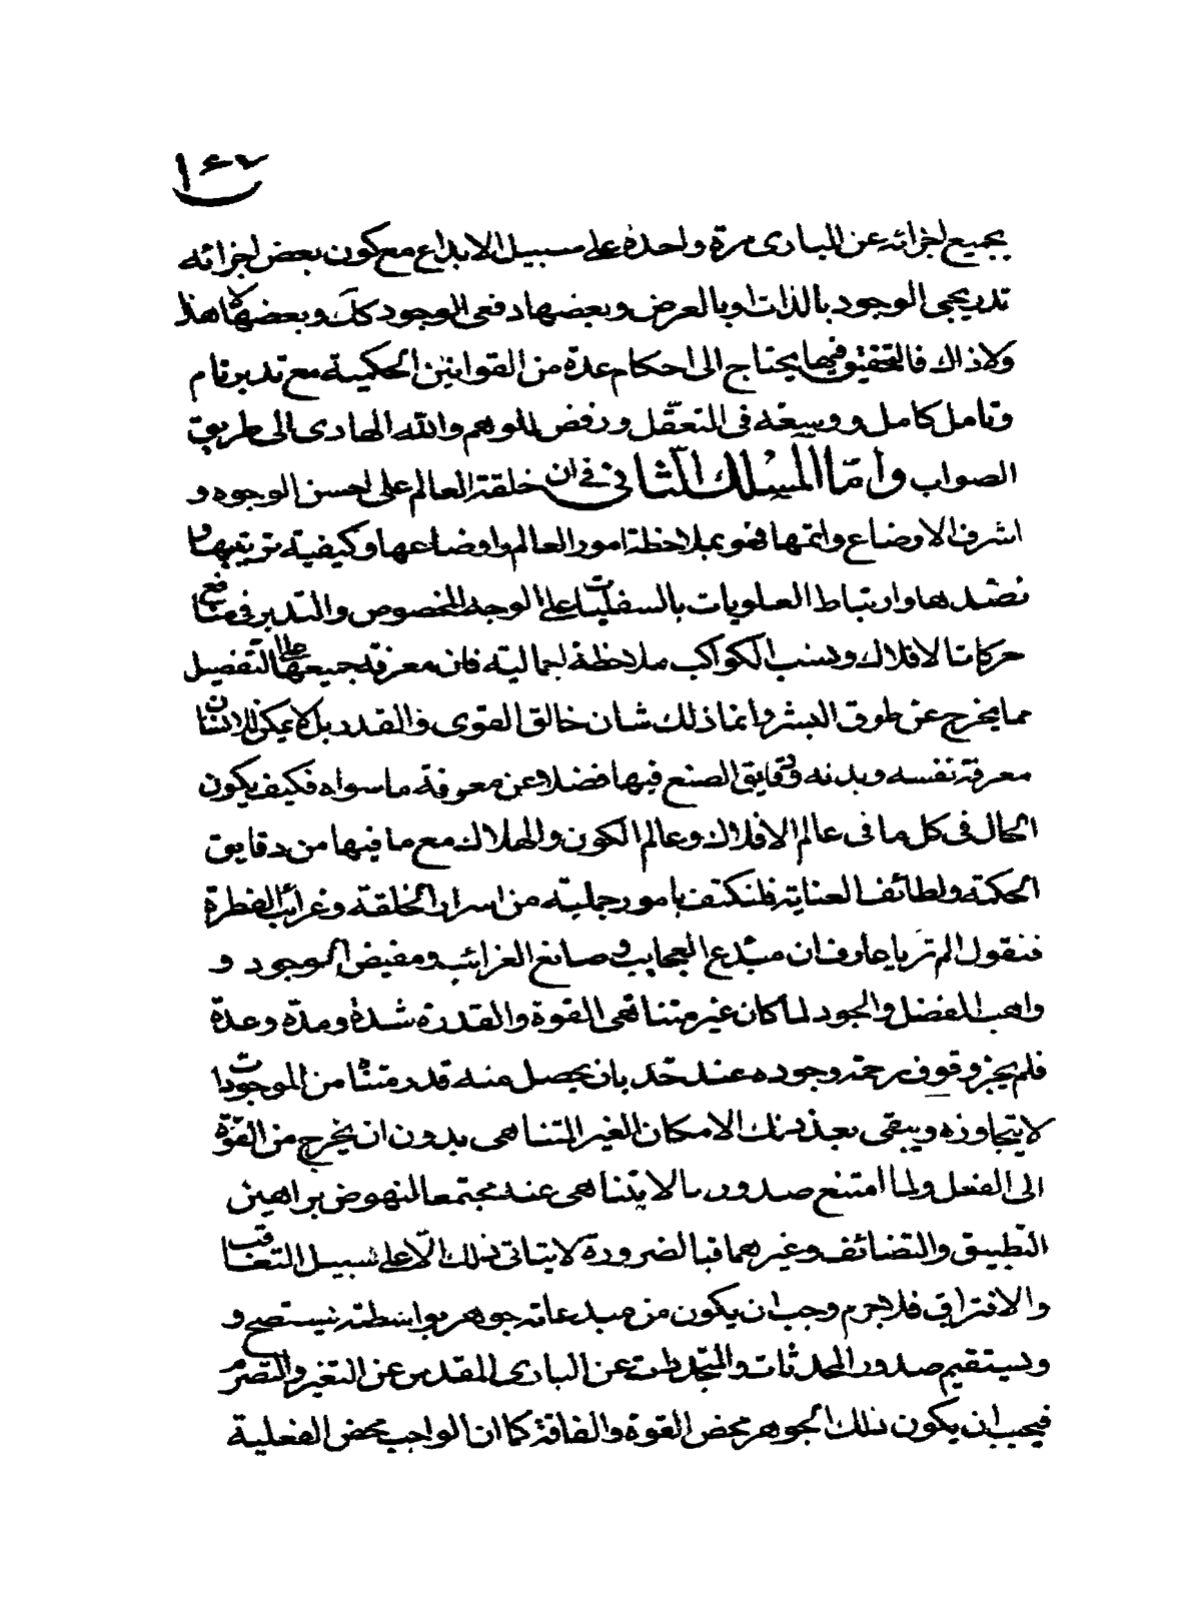 ١٤٧
بجميع اجزائه عن البارى مرة واحدة على سبيل الابداع مع كون بعض اجزائه
تدريجى الوجود بالذات او بالعرض وبعضها دفعى الوجود كك وبعضها لا هذا
ولا ذاك فالتحقيق فيها يحتاج الى احكام عدة من القوانين الحكمية مع تدبر تام
وتامل كامل ووسعة فى التعقل ورفض للوهم والله الهادى الى طريق
الصواب واما المسلك الثانى فى ان خلقة العالم على احسن الوجوه و
اشرف الاوضاع واتمها فهو بملاحظة امور العالم واوضاعها وكيفية ترتيبها و
نضدها وارتباط العلويات بالسفليات على الوجه المخصوص والتدبر فى منافع
حركات الافلاك ونسب الكواكب ملاحظة اجمالية فان معرفة جميعها على التفصيل
مما يخرج عن طوق البشر وانما ذلك شان خالق القوى والقدر بل لا يمكن للانسان
معرفة نفسه وبدنه ودقايق الصنع فيها فضلا عن معرفة ما سواه فكيف يكون
الحال فى كل ما فى عالم الافلاك وعالم الكون والهلاك مع ما فيها من دقايق
الحكمة ولطائف العناية فلنكتف بامور جملية من اسرار الخلقة وغرائب الفطرة
فنقول الم تر يا عارف ان مبدع العجايب وصانع الغرائب ومفيض الوجود و
واهب الفضل والجود لما كان غير متناهى القوة والقدرة شدة ومدة وعدة
فلم يجز وقوف رحمته وجوده عند حد بان يحصل منه قدر متناه من الموجودات
لا يتجاوزه ويبقى بعد ذلك الامكان الغير المتناهى بدون ان يخرج من القوة
الى الفعل ولما امتنع صدور ما لا يتناهى عنه مجتمعا لنهوض براهين
التطبيق والتضائف وغيرهما فبالضرورة لا يتاتى ذلك الا على سبيل التعاقب
والافتراق فلا جرم وجب ان يكون من مبدعاته جوهر بواسطته يستصح و
ويستقيم صدور المحدثات والمتجددات عن البارى المقدس عن التغير والتصرم
فيجب ان يكون ذلك الجوهر محض القوة والفاقة كما ان الواجب محض الفعلية